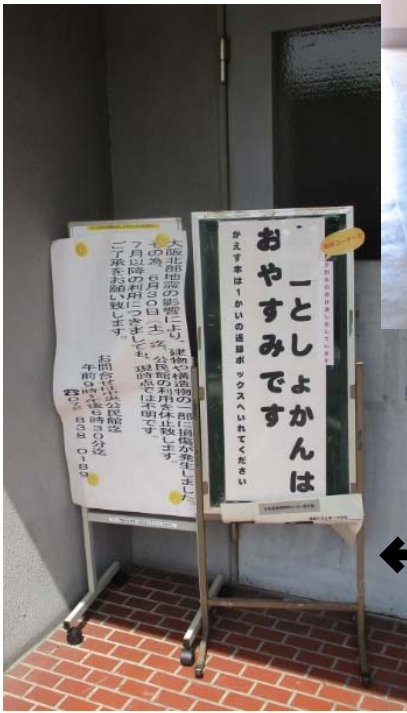 としょかんは
おやすみです
かえす本は1かいの返却ボックスへいれてください
大阪北部地震の影響により、建物や構造物の一部に損傷が発生しました。
その為、6月30日（土）迄、公民館の利用を休止致します。
7月以降の利用につきましても、現時点では不明です。
ご了承をお願い致します。
お問合せは中央公民館迄
午前9時〜午後6時30分迄
838 0189